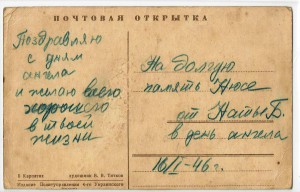 ПОЧТОВАЯ ОТКРЫТКА
Поздравляю
с днём
ангела
и желаю всего
хорошего
в твоей
жизни
На долгую
память Нюсе
от Наты Б.
в день ангела
16/II-46 г.
В Карпатах художник В. В. Титков
Издание Политуправления 4-го Украинского